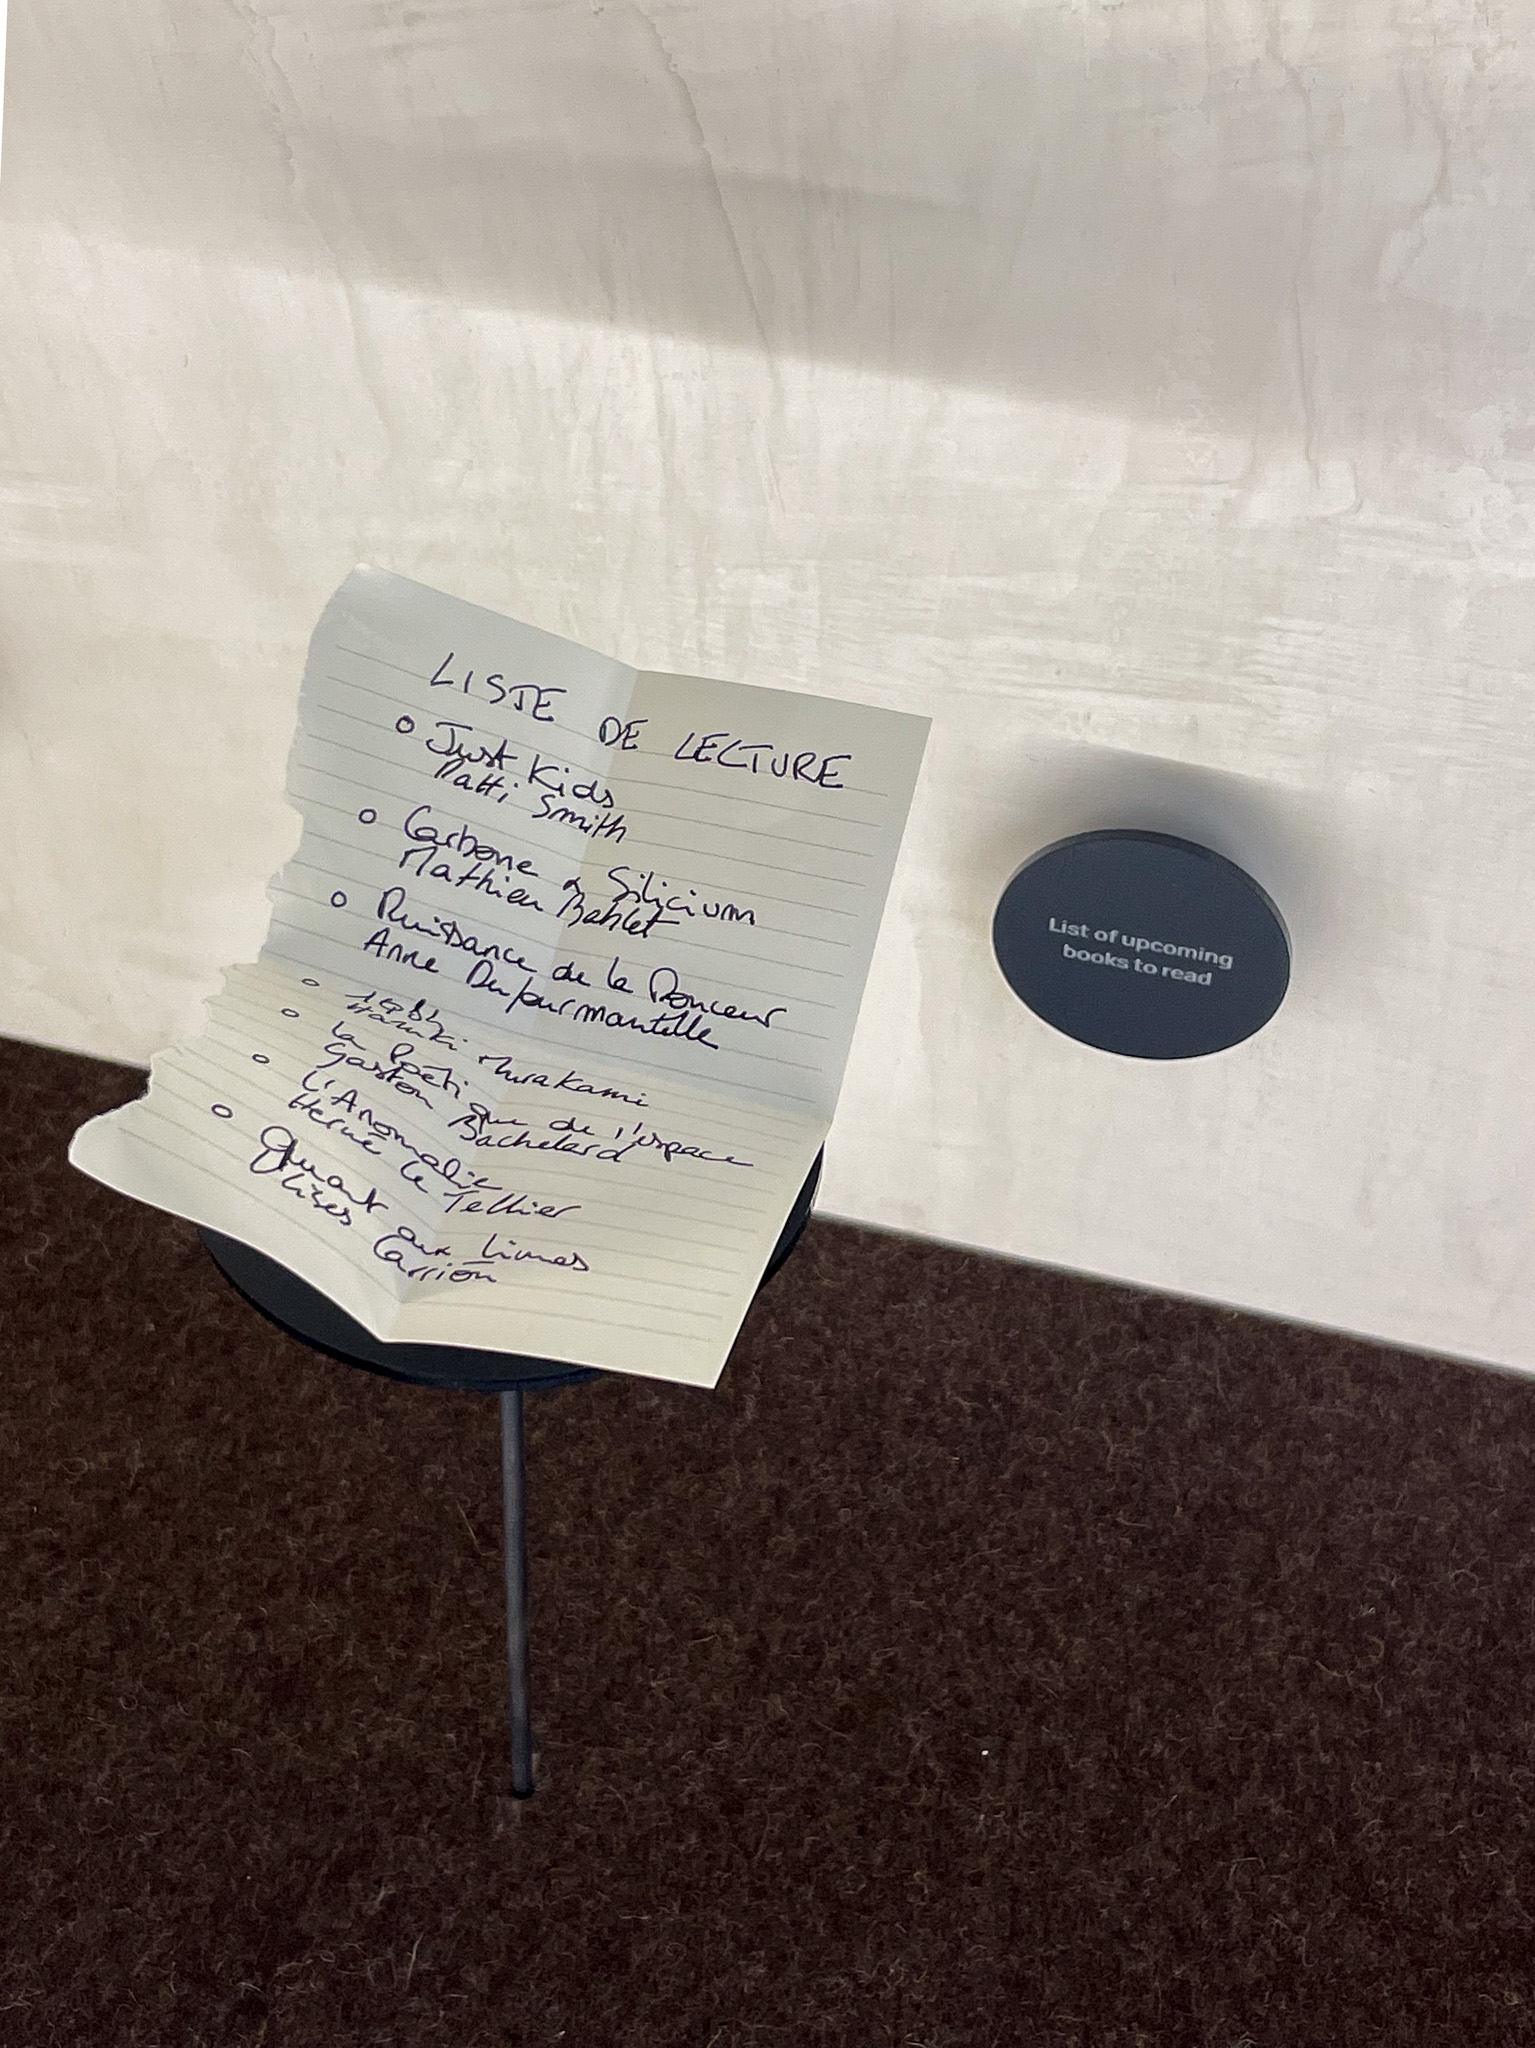 LISTE DE LECTURE
o Just Kids
Patti Smith
o Carbone & Silicium
Mathieu Bablet
o Puissance de la Douceur
Anne Dufourmantelle
o 1Q84
Haruki Murakami
o La Poétique de l'espace
Gaston Bachelard
o L'Anomalie
Hervé Le Tellier
o Quant aux Livres
Ulises Carrión
List of upcoming
books to read